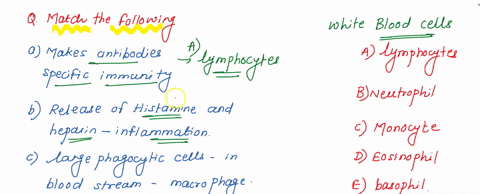 Q Match the following
a) Makes antibodies → A) lymphocytes
specific immunity
b) Release of Histamine and
heparin - inflammation.
c) large phagocytic cells - in
blood stream - macrophage.
White Blood cells
A) lymphocytes
B) Neutrophil
C) Monocyte
D) Eosinophil
E) basophil